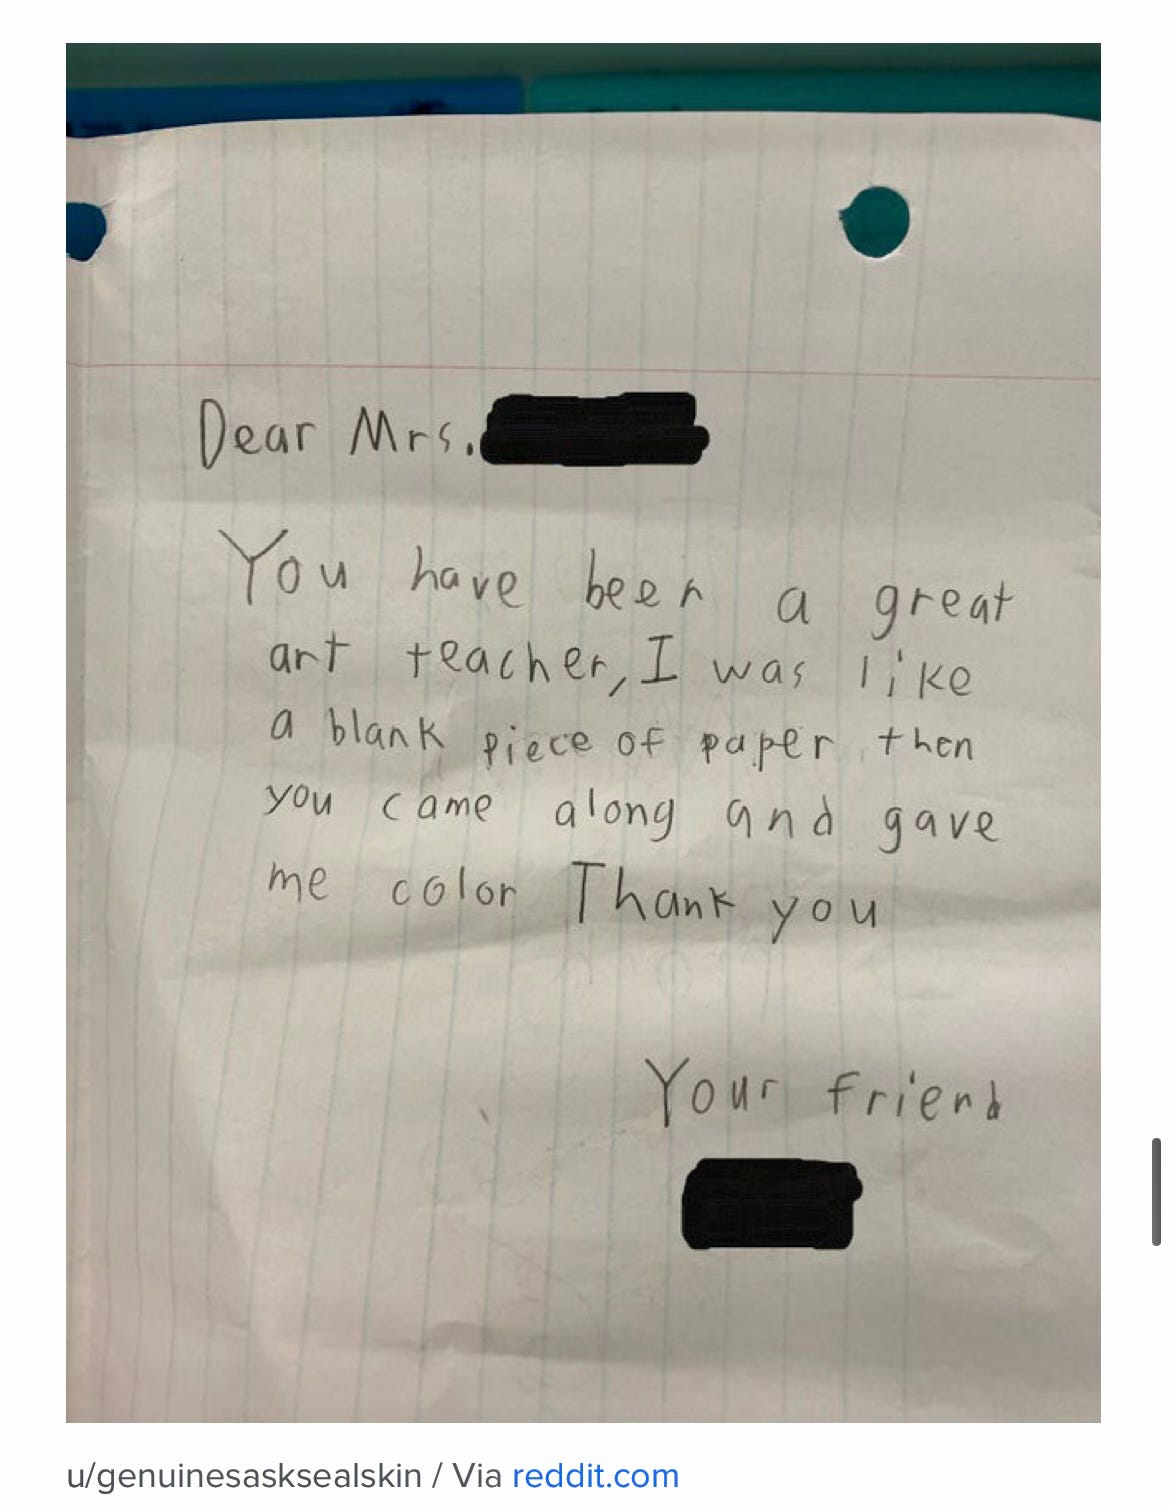 Dear Mrs.
You have been a great
art teacher, I was like
a blank piece of paper then
you came along and gave
me color Thank you
Your friend
u/genuinesasksealskin / Via reddit.com